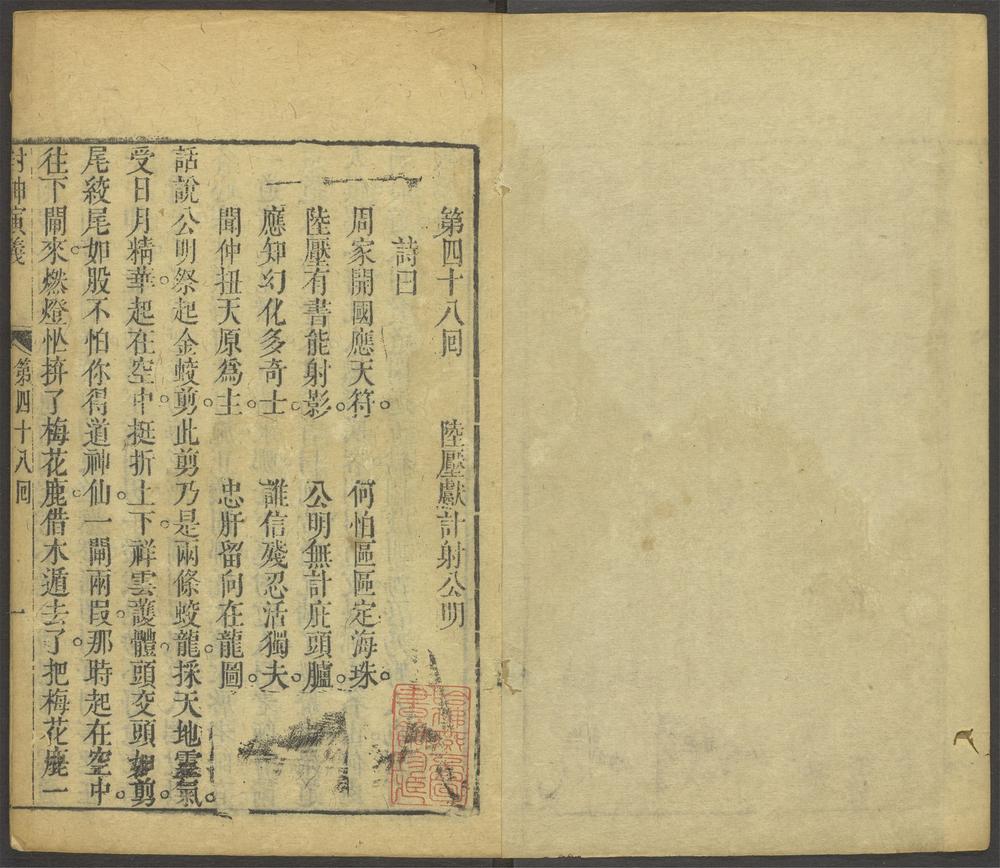 第四十八回　陸壓獻計射公明
詩曰
周家開國應天符。何怕區區定海珠。
陸壓有書能射影。公明無計庇頭臚。
應知幻化多奇士。誰信殘忍活獨夫。
聞仲扭天原爲主。忠肝留向在龍圖。
話說公明祭起金蛟剪。此剪乃是兩條蛟龍。採天地靈氣。
受日月精華。起在空中。挺折上下。祥雲護體。頭交頭如剪。
尾絞尾如股。不怕你得道神仙。一閘兩段。那時起在空中。
往下閘來。燃燈忙拚了梅花鹿。借木遁去了。把梅花鹿一
封神演義　第四十八回　一